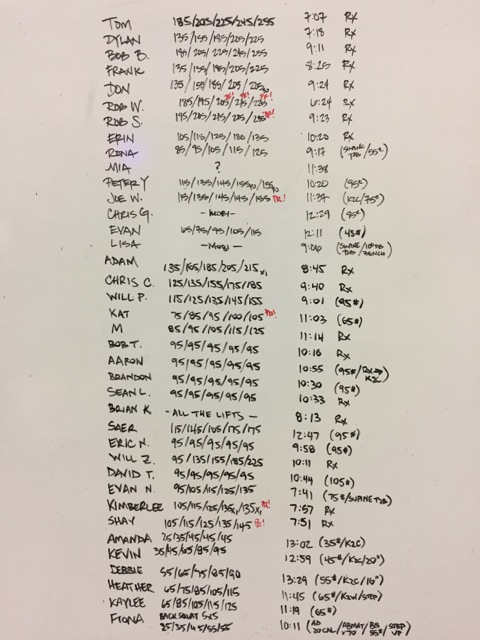 TOM 185/205/225/245/255 7:07 Rx
DYLAN 135/155/185/205/225 7:18 Rx
BOB B. 185/205/225/245/255 9:11 Rx
FRANK 135/155/185/205/225 8:25 Rx
JON 135/155/185/205/225 9:24 Rx
ROB W. 185/195/205/215/225 PR! PR! PR! 6:24 Rx
ROB S. 195/205/215/225/235 PR! 9:23 Rx
ERIN 105/115/125/130/135 10:20 Rx
RONA 85/95/105/115/125 9:17 (SUPINE TAB/55#)
MIA ? 11:38
PETER Y 115/135/145/155/155 10:20 (95#)
JOE W. 115/135/145/145/155 PR! 11:37 (K2C/75#)
CHRIS G. - MURPH - 12:29 (95#)
EVAN 65/75/95/105/115 12:11 (45#)
LISA 9:00
ADAM 135/165/185/205/215x1 8:45 Rx
CHRIS C. 125/135/155/175/185 9:40 Rx
WILL P. 115/125/135/145/155 9:01 (95#)
KAT 75/85/95/100/105 PR! 11:03 (65#)
M 85/95/105/115/125 11:14 Rx
BOB T. 95/95/95/95/95 10:16 Rx
AARON 95/95/95/95/95 10:55 (95#/ K2C)
BRANDON 95/95/95/95/95 10:30 (95#)
SEAN L. 95/95/95/95/95 10:33 Rx
BRIAN K - ALL THE LIFTS - 8:13 Rx
SAER 115/145/165/175/175 12:47 (95#)
ERIC N. 95/95/95/95/95 9:58 (95#)
WILL Z. 95/135/155/185/225 10:11 Rx
DAVID T. 95/95/95/95/95 10:44 (105#)
EVAN N. 95/105/115/125/135 7:41 (75#/SUPINE T2B)
KIMBERLEE 105/115/125/135x1/135x1 PR! 7:57 Rx
SHAY 105/115/125/135/145 PR! 7:51 Rx
AMANDA 25/35/45/45/45 13:02 (35#/K2C)
KEVIN 35/45/65/85/95 12:59 (45#/K2C/20")
DEBBIE 55/65/75/85/90 13:29 (55#/K2C/16")
HEATHER 65/75/85/105/115 11:45 (65#/K2C/STEP)
KAYLEE 65/85/105/115/125 11:19 (65#)
FIONA BACK SQUAT 5x5 25/35/45/55/55 10:11 (AD 20 CAL/ABMAT 70/BS 55#/STEP)